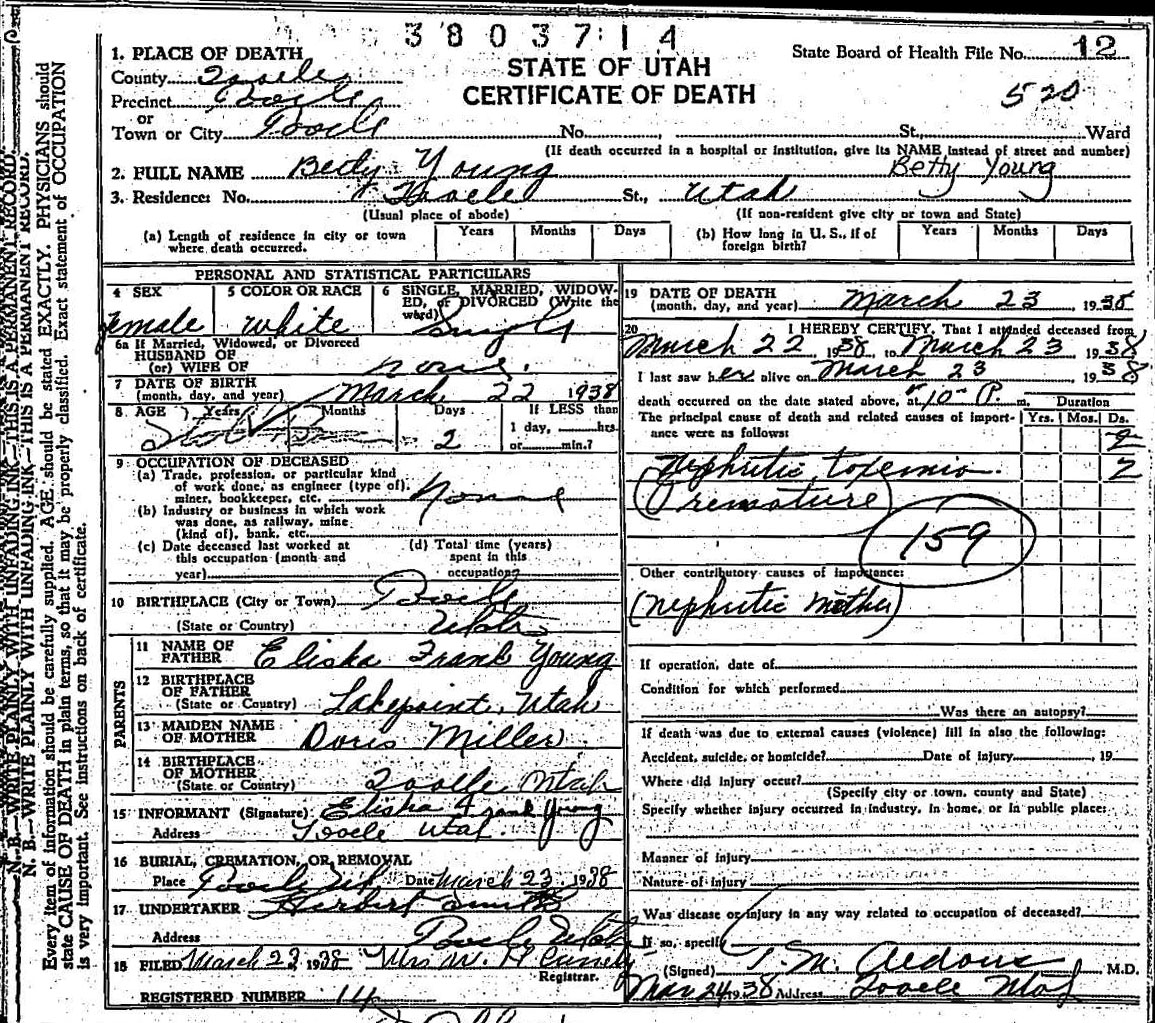 3803714
State Board of Health File No. 12
1. PLACE OF DEATH
STATE OF UTAH
CERTIFICATE OF DEATH
520
County Tooele
Precinct Tooele
or
Town or City Tooele No. , St., Ward
(If death occurred in a hospital or institution, give its NAME instead of street and number)
2. FULL NAME Bedy Young Betty Young
3. Residence: No. Tooele St., Utah
(Usual place of abode) (If non-resident give city or town and State)
(a) Length of residence in city or town where death occurred. Years Months Days
(b) How long in U. S., if of foreign birth? Years Months Days
PERSONAL AND STATISTICAL PARTICULARS
4 SEX female
5 COLOR OR RACE white
6 SINGLE, MARRIED, WIDOWED, or DIVORCED (Write the word) Single
6a If Married, Widowed, or Divorced
HUSBAND OF
(or) WIFE OF none.
7 DATE OF BIRTH
(month, day, and year) March 22 1938
8 AGE Years Months Days If LESS than
2 1 day, hrs.
or min.?
9 OCCUPATION OF DECEASED
(a) Trade, profession, or particular kind
of work done, as engineer (type of),
miner, bookkeeper, etc. None
(b) Industry or business in which work
was done, as railway, mine
(kind of), bank, etc.
(c) Date deceased last worked at
this occupation (month and
year)
(d) Total time (years)
spent in this
occupation
10 BIRTHPLACE (City or Town) Tooele
(State or Country) Utah
PARENTS
11 NAME OF
FATHER Elisha Frank Young
12 BIRTHPLACE
OF FATHER
(State or Country) Lakepoint, Utah
13 MAIDEN NAME
OF MOTHER Doris Miller
14 BIRTHPLACE
OF MOTHER
(State or Country) Tooele Utah
15 INFORMANT (Signature) Elisha Frank Young
Address Tooele Utah.
16 BURIAL, CREMATION, OR REMOVAL
Place Tooele Ut Date March 23 1938
17 UNDERTAKER Herbert Smith
Address Tooele Utah
18 FILED March 23 1938 Mrs W. H
Registrar.
REGISTERED NUMBER 14
19 DATE OF DEATH
(month, day, and year) March 23 1938
20 I HEREBY CERTIFY, That I attended deceased from
March 22 1938 to March 23 1938
I last saw her alive on March 23 1938
death occurred on the date stated above, at 10 P. m. Duration
The principal cause of death and related causes of importance were as follows: Yrs. Mos. Ds.
2
Nephritic toxemia 2
(Premature)
159
Other contributory causes of importance:
(Nephritic mother)
If operation, date of
Condition for which performed
Was there an autopsy?
If death was due to external causes (violence) fill in also the following:
Accident, suicide, or homicide? Date of injury , 19
Where did injury occur?
(Specify city or town, county and State)
Specify whether injury occurred in industry, in home, or in public place:
Manner of injury
Nature of injury
Was disease or injury in any way related to occupation of deceased?
If so, specify
(Signed) T. M. Aldous M.D.
Mar 24 1938 Address Tooele Utah
N. B.—WRITE PLAINLY WITH UNFADING INK—THIS IS A PERMANENT RECORD.
Every item of information should be carefully supplied. AGE should be stated EXACTLY. PHYSICIANS should
state CAUSE OF DEATH in plain terms, so that it may be properly classified. Exact statement of OCCUPATION
is very important. See instructions on back of certificate.